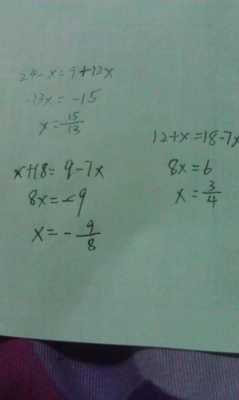 24-x=9+12x
-13x=-15
x=15/13
x+18=9-7x
8x=-9
x=-9/8
12+x=18-7x
8x=6
x=3/4